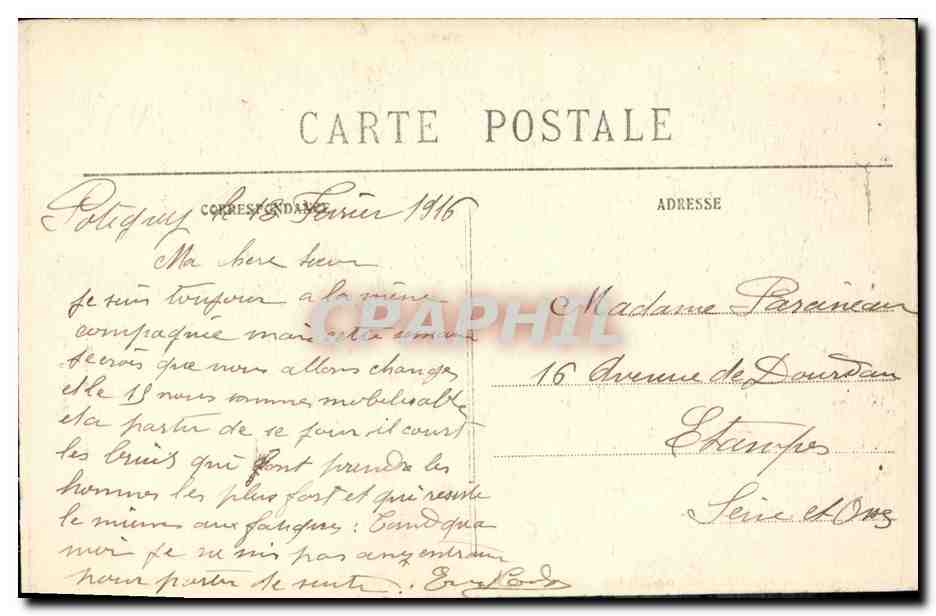 CARTE POSTALE
CORRESPONDANCE
ADRESSE
Potigny le Fevrier 1916
Ma here soeur
je suis toujour a la mème
compagnie mais cette semaine
je crois que nous allons changer
et le 15 nous sommes mobelisable
et a partir de se jour il court
les bruis qui vont prendre les
hommes les plus fort et qui resiste
le mieux aux fatigues : Tand qua
moi je ne suis pas assez entrainer
pour partir de suite.
Madame Paraineau
16 Avenue de Dourdan
Etampes
Seine et Oise
CPAPHIL